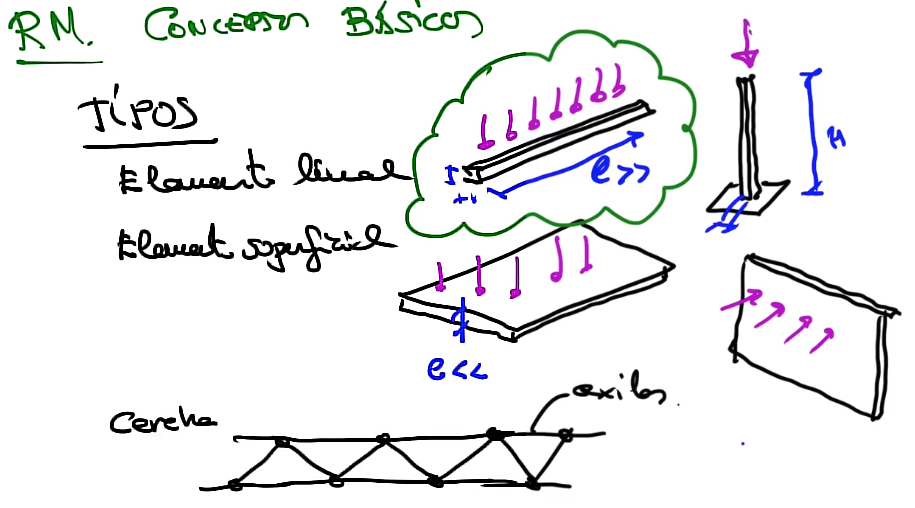 RM. CONCEPTOS BÁSICOS
TIPOS
Element lineal
l>>
H
Element superficial
e<<
Cercha
axiles.